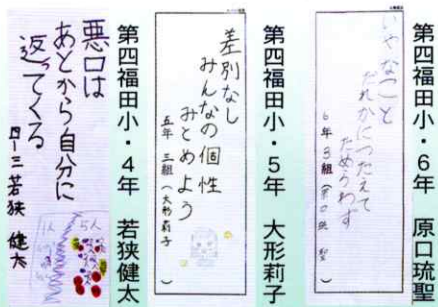 第四福田小・6年 原口琉聖
いやなこと
だれかにつたえて
ためらわず
6年3組
第四福田小・5年 大形莉子
差別なし
みんなの個性
みとめよう
五年三組(大形莉子)
第四福田小・4年 若狭健太
悪口は
あとから自分に
返ってくる
四一三 若狭 健太